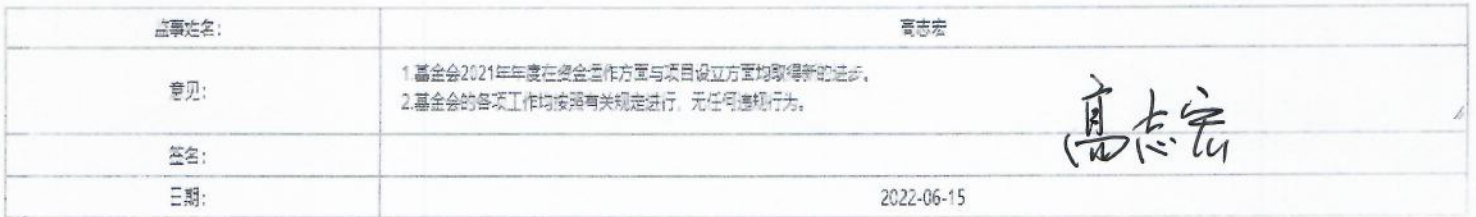 监事姓名: 高志宏
意见: 1.基金会2021年年度在资金运作方面与项目设立方面均取得新的进步。
2.基金会的各项工作均按照有关规定进行，无任何违规行为。
签名: 高志宏
日期: 2022-06-15